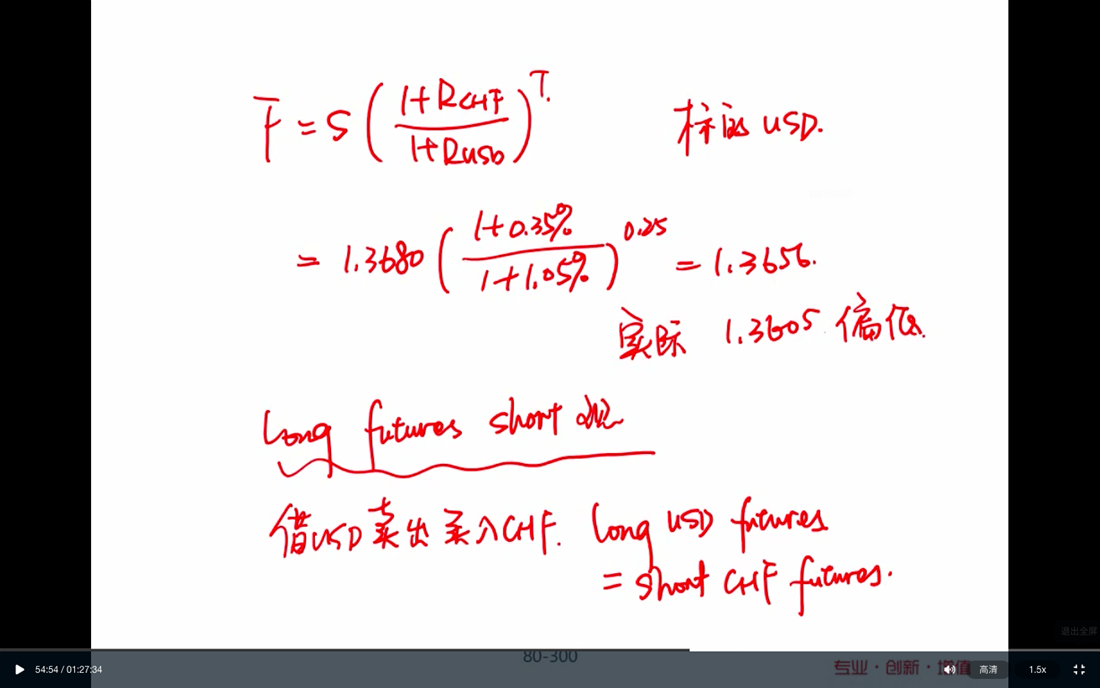 F = S ( (1+RCHF) / (1+RUSD) )^T.
标的 USD.
= 1.3680 ( (1+0.35%) / (1+1.05%) )^0.25 = 1.3656.
实际 1.3605 偏低.
Long futures short 现
借USD卖出买入CHF. Long USD futures
= short CHF futures.
退出全屏
80-300
54:54 / 01:27:34
专业·创新·增值
高清
1.5x